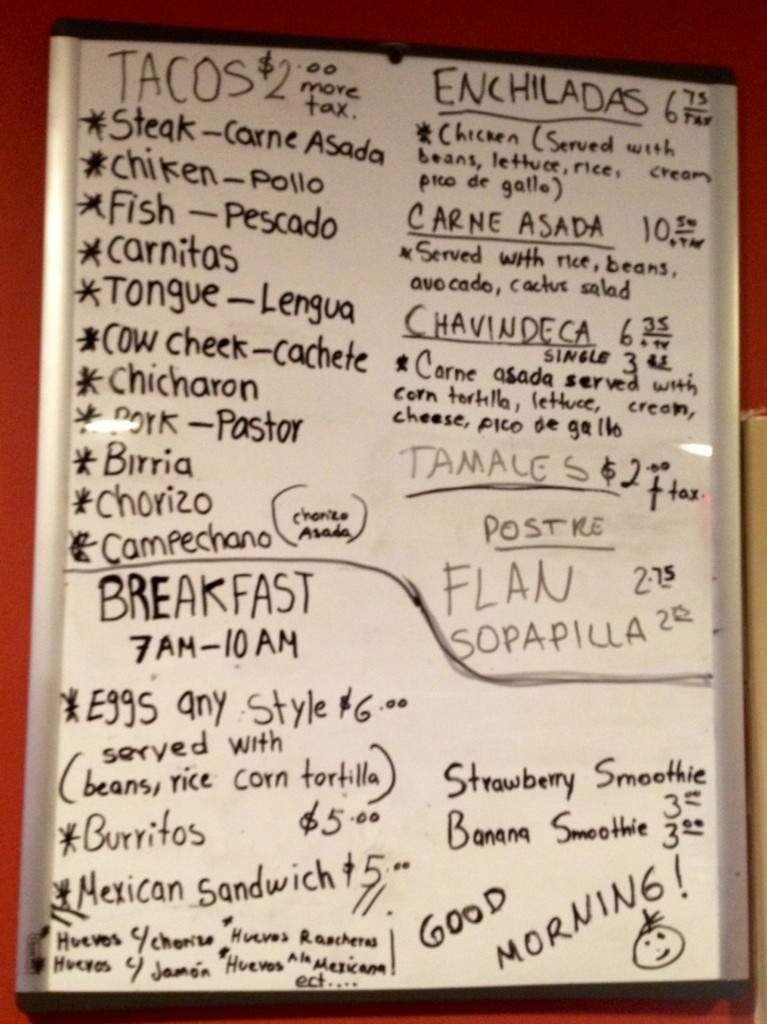 TACOS $2.00
more
tax.
*Steak-Carne Asada
*Chiken-Pollo
*Fish-Pescado
*Carnitas
*Tongue-Lengua
*Cow cheek-Cachete
*Chicharon
*Pork-Pastor
*Birria
*Chorizo
*Campechano (chorizo
Asada)
ENCHILADAS 6 75
+TAX
*Chicken (Served with
beans, lettuce, rice, cream
pico de gallo)
CARNE ASADA 10 50
+TAX
*Served with rice, beans,
avocado, cactus salad
CHAVINDECA 6 35
+TX
SINGLE 3
*Carne asada served with
corn tortilla, lettuce, cream,
cheese, pico de gallo
TAMALES $2.00
+tax.
POSTRE
FLAN 2.75
SOPAPILLA 2
BREAKFAST
7AM-10AM
*Eggs any style $6.00
served with
(beans, rice corn tortilla)
*Burritos $5.00
*Mexican Sandwich $5.00
*Huevos c/chorizo *Huevos Rancheros
*Huevos c/ Jamón *Huevos A la Mexicana!
ect....
Strawberry Smoothie
3 00
Banana Smoothie 3 00
GOOD
MORNING!